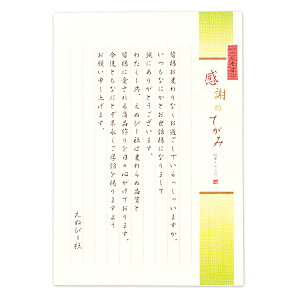 感謝のてがみ
皆様お変わりなくお過ごしでいらっしゃいますか。
いつもなにかとお世話様になりまして
誠にありがとうございます。
わたくし共、えぬびー社は変わらぬ品質と
皆様に愛される商品作りを日々心がけております。
今後ともなにとぞ末永くご厚誼を賜りますよう
お願い申し上げます。
えぬびー社